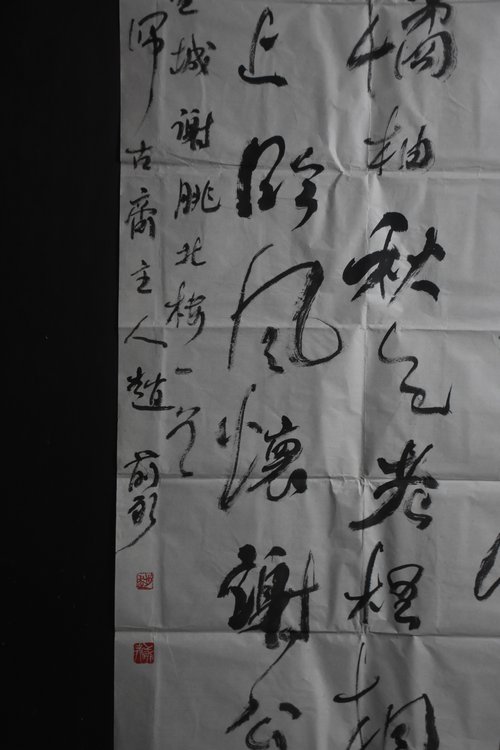 橘柚秋色老梧桐
上臨風懷謝公
城謝朓北樓一首
古齋主人趙